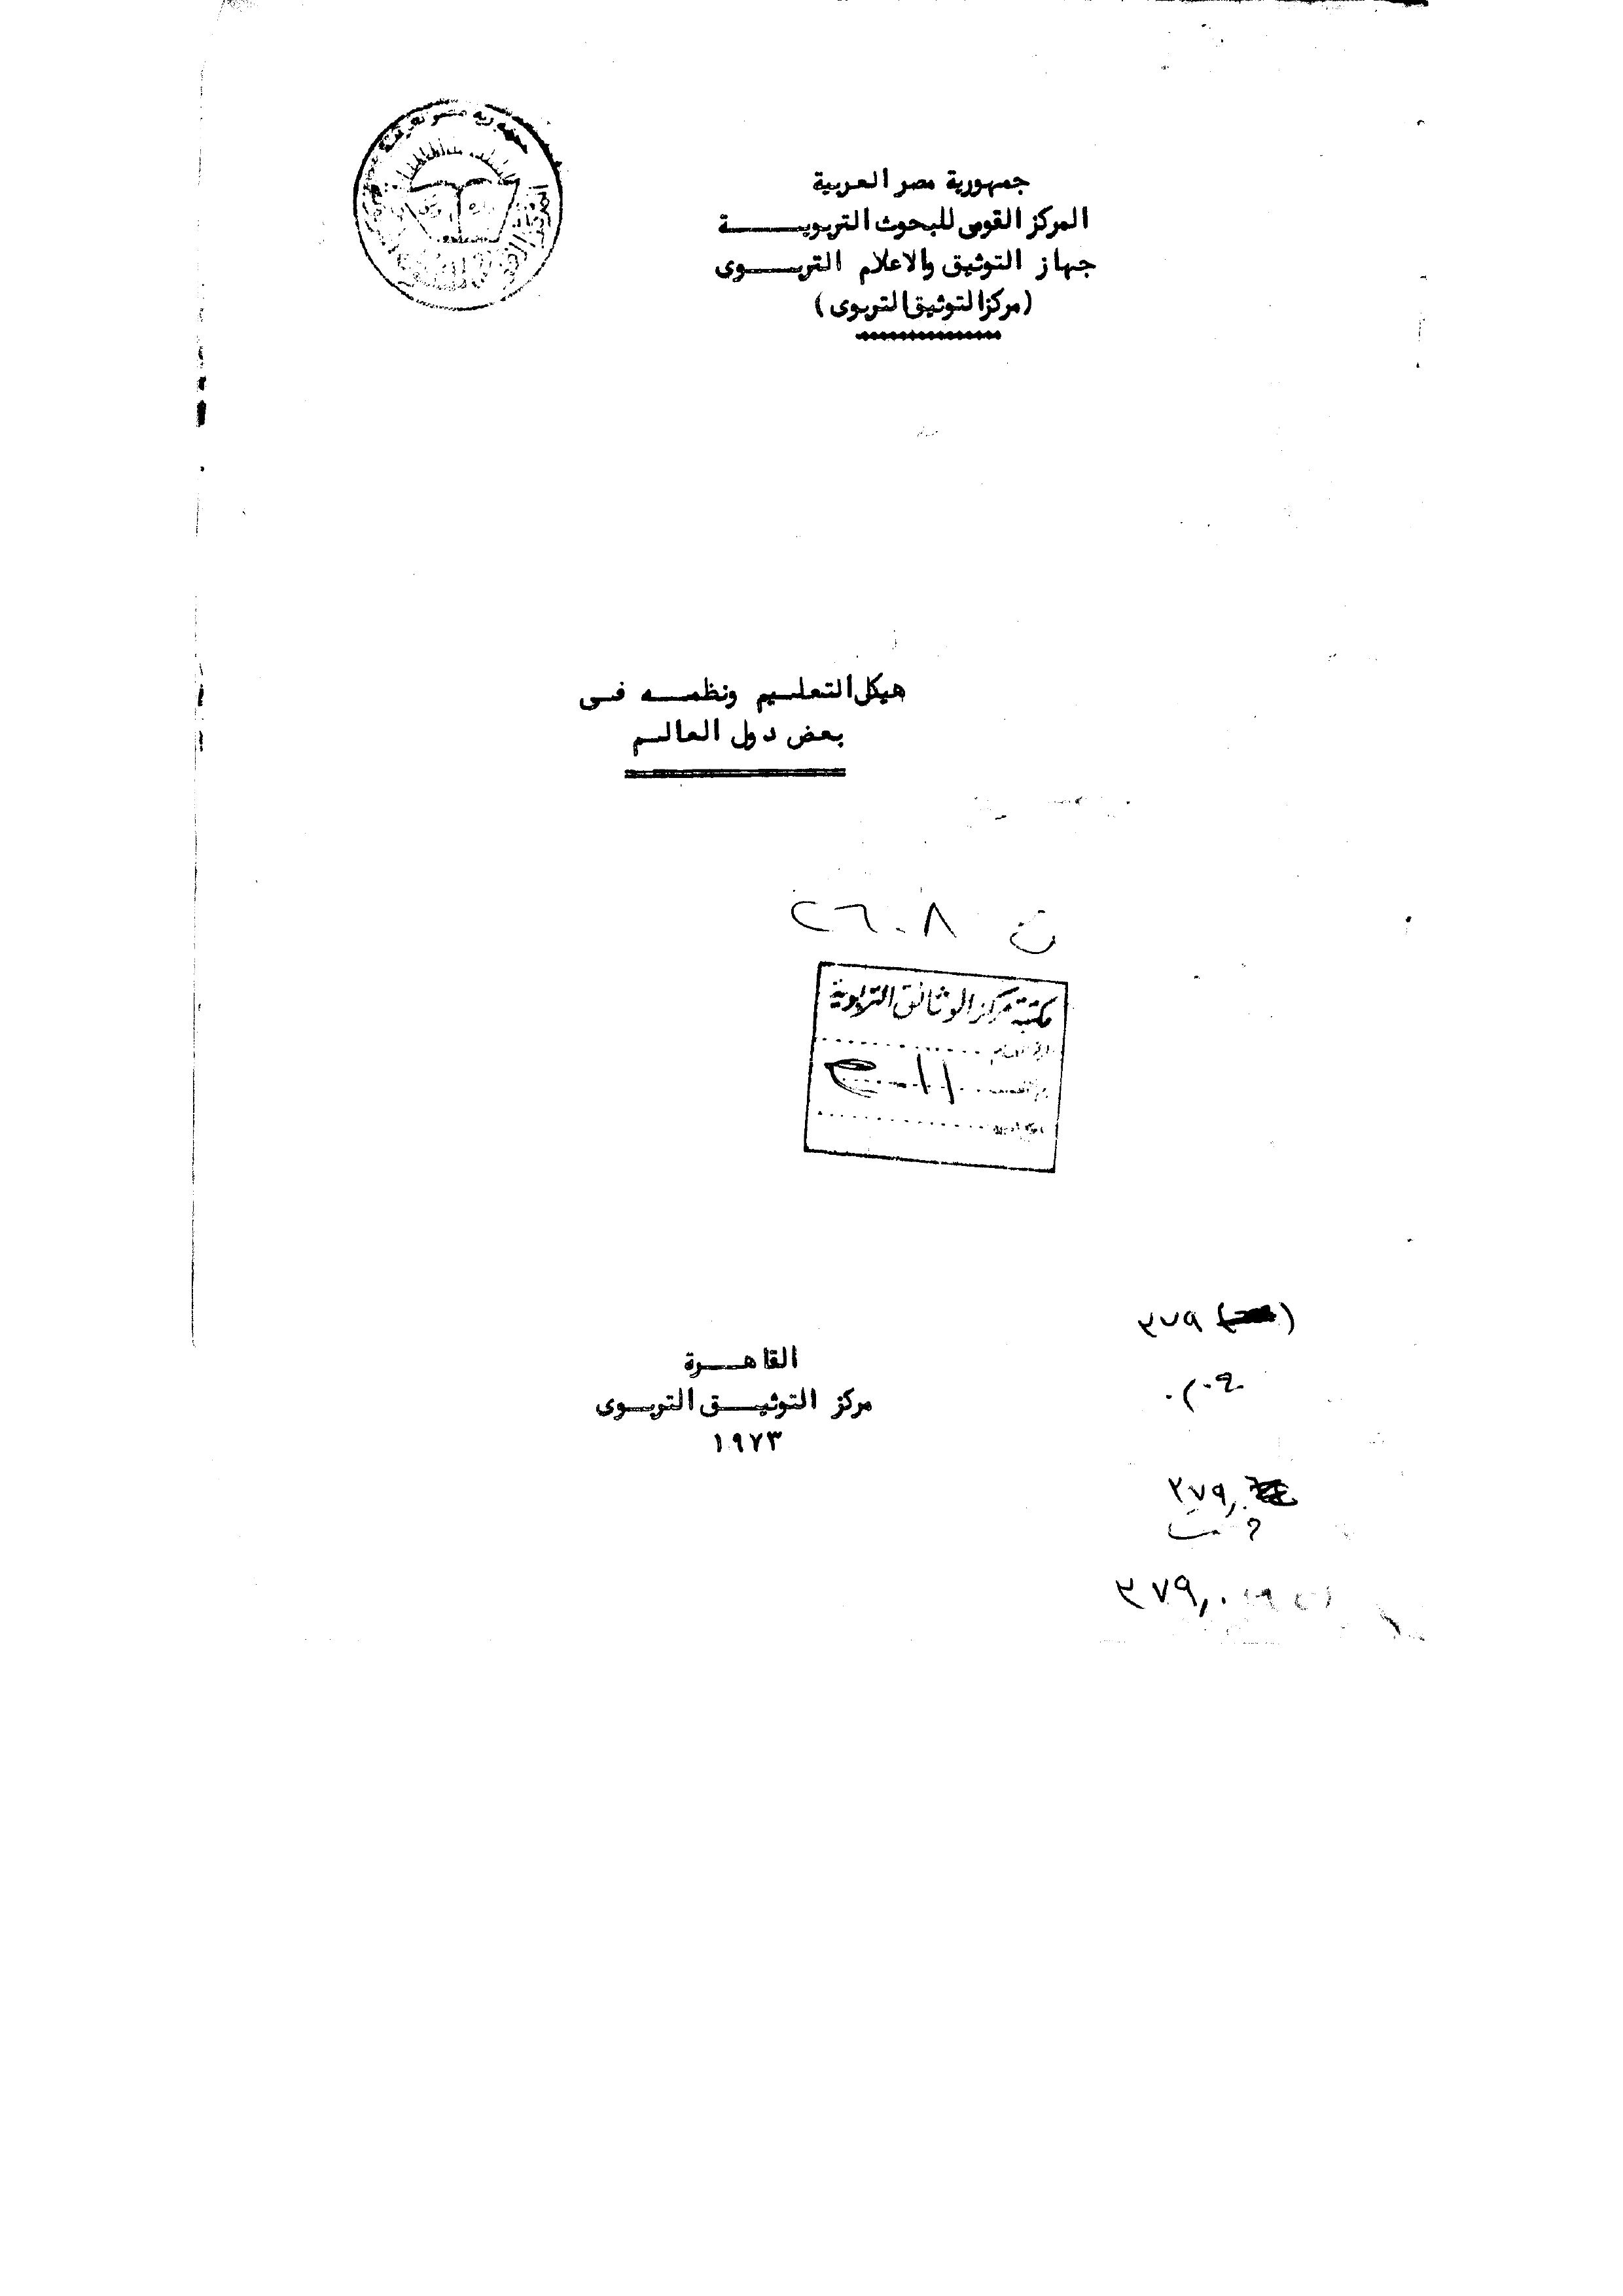 جمهورية مصر العربية
المركز القومى للبحوث التربويـــة
جهاز التوثيق والاعلام التربـــوى
(مركز التوثيق التربوى)
هيكل التعليـم ونظمـــه فــى
بعض دول العالـم
ن ٢٦٠٨
مكتبة مركز الوثائق التربوية
القاهــرة
مركز التوثيـــق التربــوى
١٩٧٣
٣٧٩
٣٧٩,٠